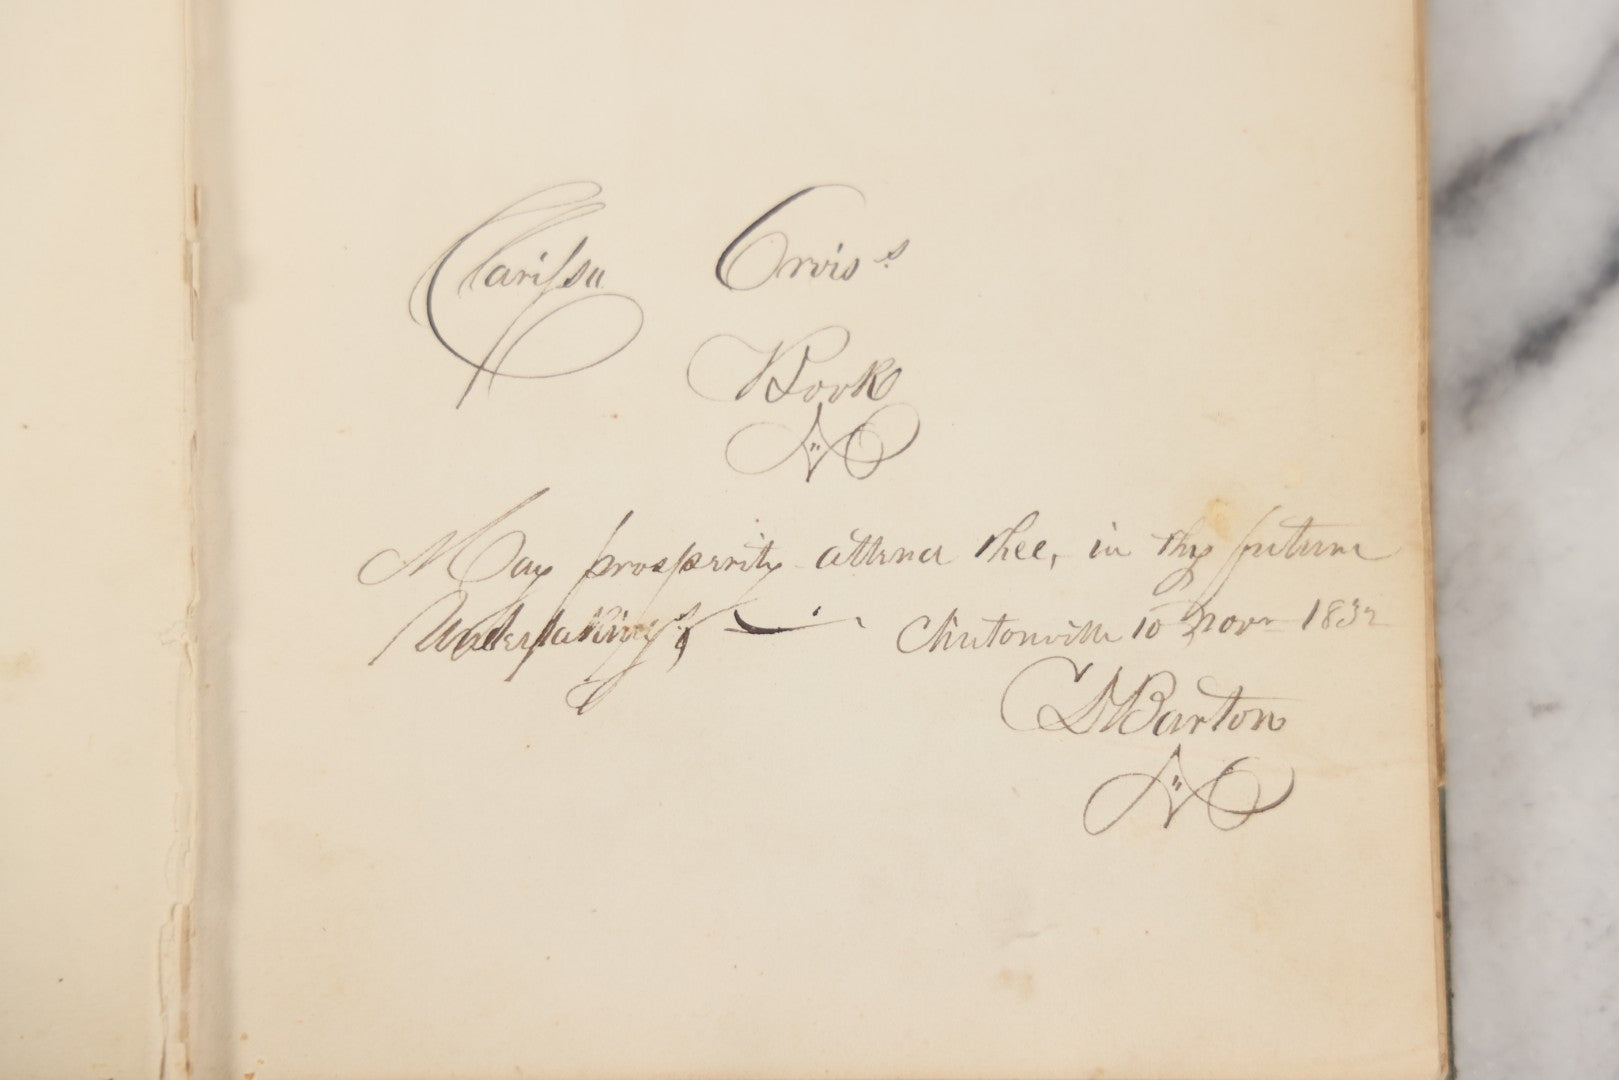 Clarissa Orvis's
Book
May prosperity attend thee, in thy future
Undertakings,
Clintonville 10 Novr 1832
CD Barton